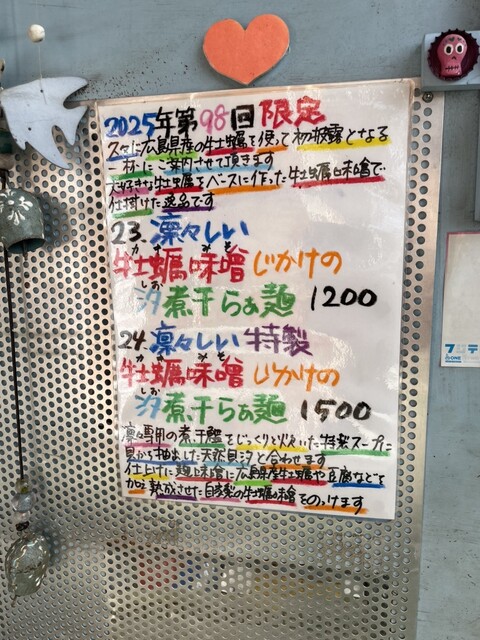 2025年第98回限定
久々に広島県産の牡蠣を使って初披露となる
一杯にご案内させて頂きます
大好きな牡蠣をベースに作った牡蠣味噌で
仕付けた逸品です
23.凛々しい
かきみそ
牡蠣味噌じかけの
しお
汐煮干らぁ麺 1200
24.凛々しい特製
かきみそ
牡蠣味噌じかけの
しお
汐煮干らぁ麺 1500
凛々専用の煮干鰹をじっくりと火いた特製スープに
貝から抽出した天然貝汐と合わせます
仕上げに麹味噌に広島県産牡蠣や豆腐などを
加え熟成させた自家製の牡蠣味噌をのっけます